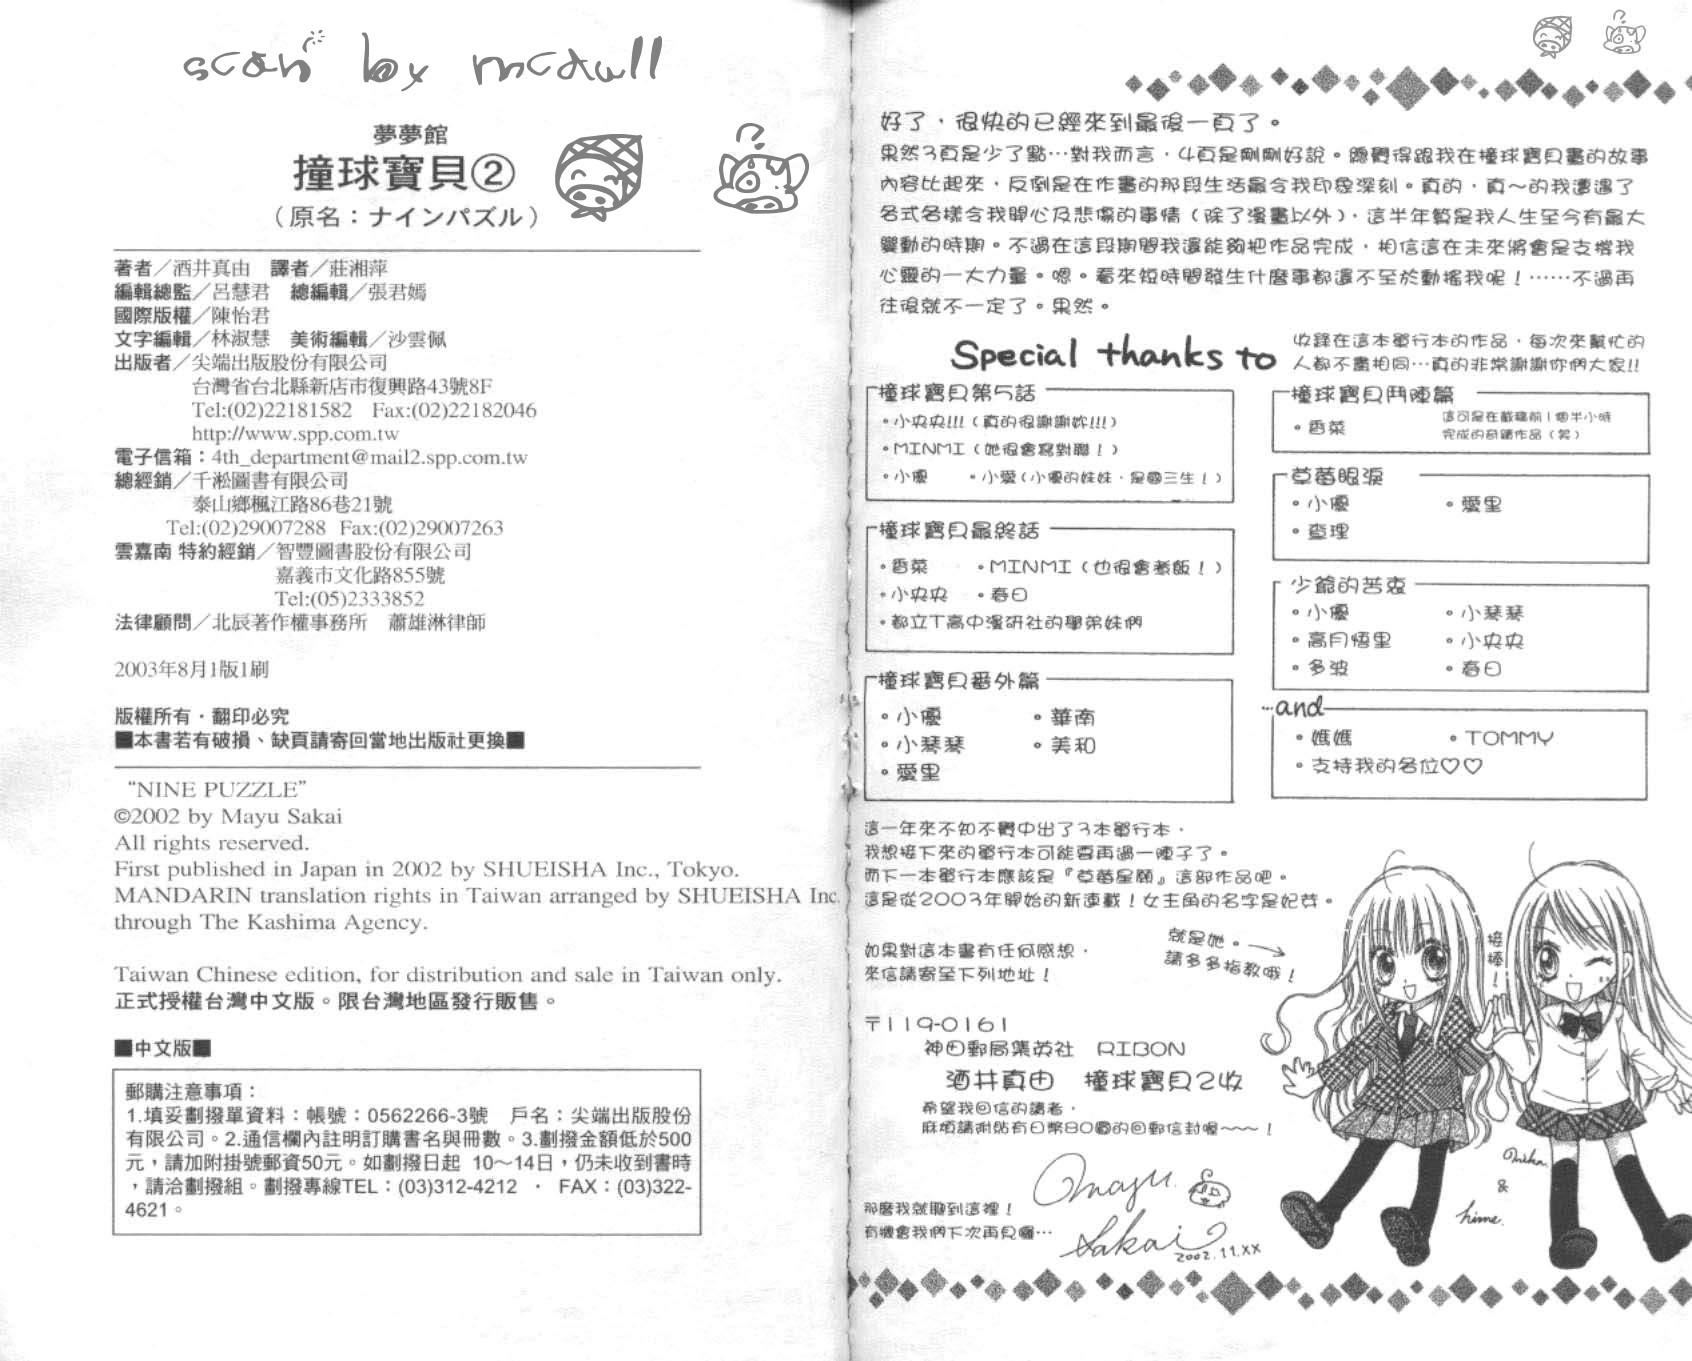 scan by mcdull
夢夢館
撞球寶貝②
（原名：ナインパズル）
著者／酒井真由　譯者／莊湘萍
編輯總監／呂慧君　總編輯／張君嫣
國際版權／陳怡君
文字編輯／林淑慧　美術編輯／沙雲佩
出版者／尖端出版股份有限公司
台灣省台北縣新店市復興路43號8F
Tel:(02)22181582　Fax:(02)22182046
http://www.spp.com.tw
電子信箱：4th_department@mail2.spp.com.tw
總經銷／千淞圖書有限公司
泰山鄉楓江路86巷21號
Tel:(02)29007288　Fax:(02)29007263
雲嘉南 特約經銷／智豐圖書股份有限公司
嘉義市文化路855號
Tel:(05)2333852
法律顧問／北辰著作權事務所　蕭雄淋律師
2003年8月1版1刷
版權所有・翻印必究
■本書若有破損、缺頁請寄回當地出版社更換■
“NINE PUZZLE”
©2002 by Mayu Sakai
All rights reserved.
First published in Japan in 2002 by SHUEISHA Inc., Tokyo.
MANDARIN translation rights in Taiwan arranged by SHUEISHA Inc.
through The Kashima Agency.
Taiwan Chinese edition, for distribution and sale in Taiwan only.
正式授權台灣中文版。限台灣地區發行販售。
■中文版■
郵購注意事項：
1.填妥劃撥單資料：帳號：0562266-3號　戶名：尖端出版股份
有限公司。2.通信欄內註明訂購書名與冊數。3.劃撥金額低於500
元，請加附掛號郵資50元。如劃撥日起 10～14日，仍未收到書時
，請洽劃撥組。劃撥專線TEL：(03)312-4212 ・ FAX：(03)322-
4621。
好了，很快的已經來到最後一頁了。
果然3頁是少了點…對我而言，4頁是剛剛好說。總覺得跟我在撞球寶貝畫的故事
內容比起來，反倒是在作畫的那段生活最令我印象深刻。真的，真～的我遭遇了
各式各樣令我開心及悲傷的事情（除了漫畫以外），這半年算是我人生至今有最大
變動的時期。不過在這段期間我還能夠把作品完成，相信這在未來將會是支撐我
心靈的一大力量。嗯。看來短時間發生什麼事都還不至於動搖我呢！……不過再
往後就不一定了。果然。
Special thanks to
收錄在這本單行本的作品，每次來幫忙的
人都不盡相同…真的非常謝謝你們大家!!
撞球寶貝第5話
・小央央!!!（真的很謝謝妳!!!）
・MINMI（她很會寫對聯！）
・小優　・小愛（小優的妹妹，是國三生！）
撞球寶貝最終話
・香菜　・MINMI（也很會煮飯！）
・小央央　・春日
・都立T高中漫研社的學弟妹們
撞球寶貝番外篇
・小優　・華南
・小琴琴　・美和
・愛里
撞球寶貝鬥陣篇
・香菜
這可是在截稿前1個半小時
完成的奇蹟作品（笑）
草莓眼淚
・小優　・愛里
・查理
少爺的苦衷
・小優　・小琴琴
・高月悟里　・小央央
・多波　・春日
…and
・媽媽　・TOMMY
・支持我的各位♡♡
這一年來不知不覺中出了3本單行本，
我想接下來的單行本可能要再過一陣子了。
而下一本單行本應該是『草莓星願』這部作品吧。
這是從2003年開始的新連載！女主角的名字是妃芽。
就是她。→
請多多指教哦！
接棒！
如果對這本書有任何感想，
來信請寄至下列地址！
〒119-0161
神田郵局集英社　RIBON
酒井真由　撞球寶貝2收
希望我回信的讀者，
麻煩請附貼有日幣80圓的回郵信封喔～～～！
那麼我就聊到這裡！
有機會我們下次再見囉…
Mayu
Sakai
2002.11.XX
mika
&
hime.